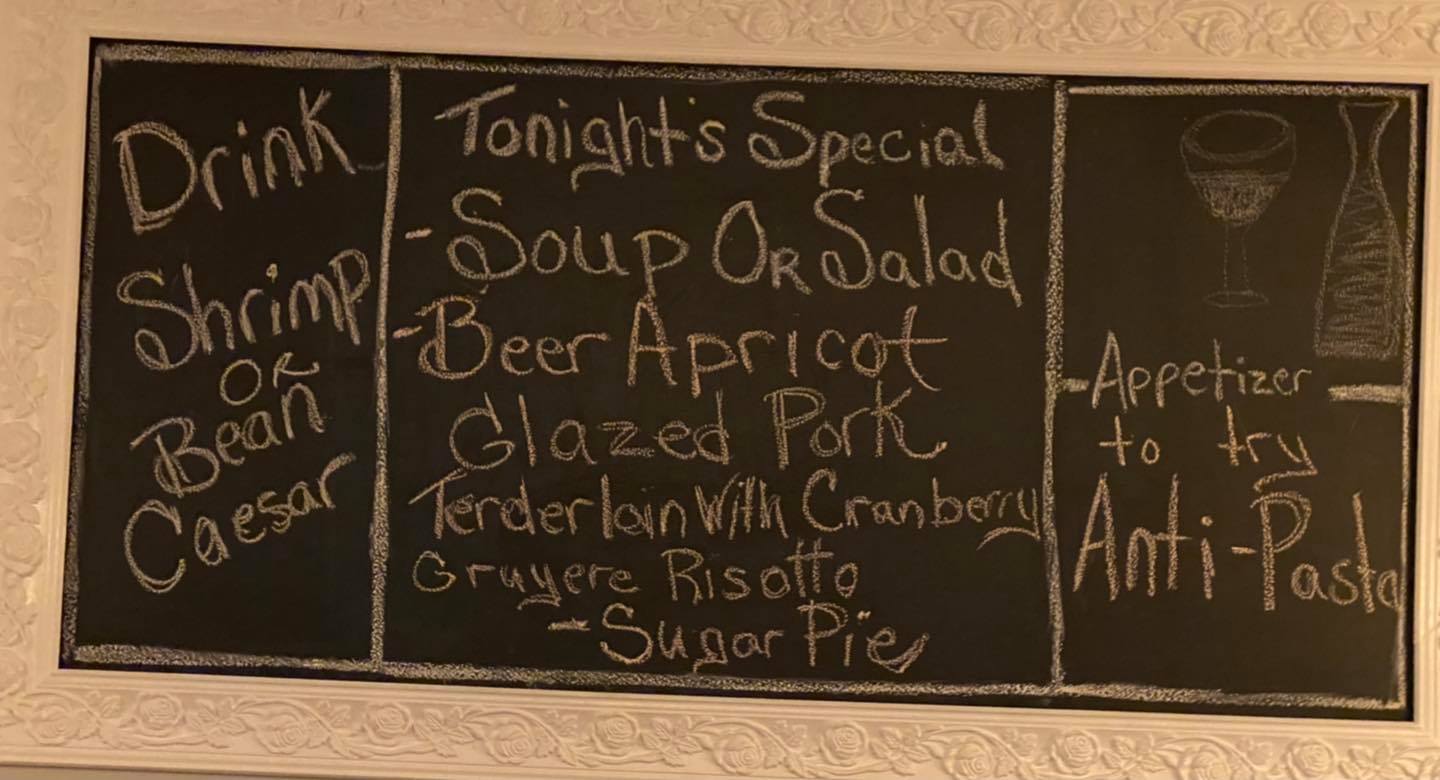 Drink
Shrimp
OR
Bean
Caesar
Tonight's Special
- Soup OR Salad
- Beer Apricot
Glazed Pork
Tenderloin With Cranberry
Gruyere Risotto
- Sugar Pie
- Appetizer -
to try
Anti-Pasta